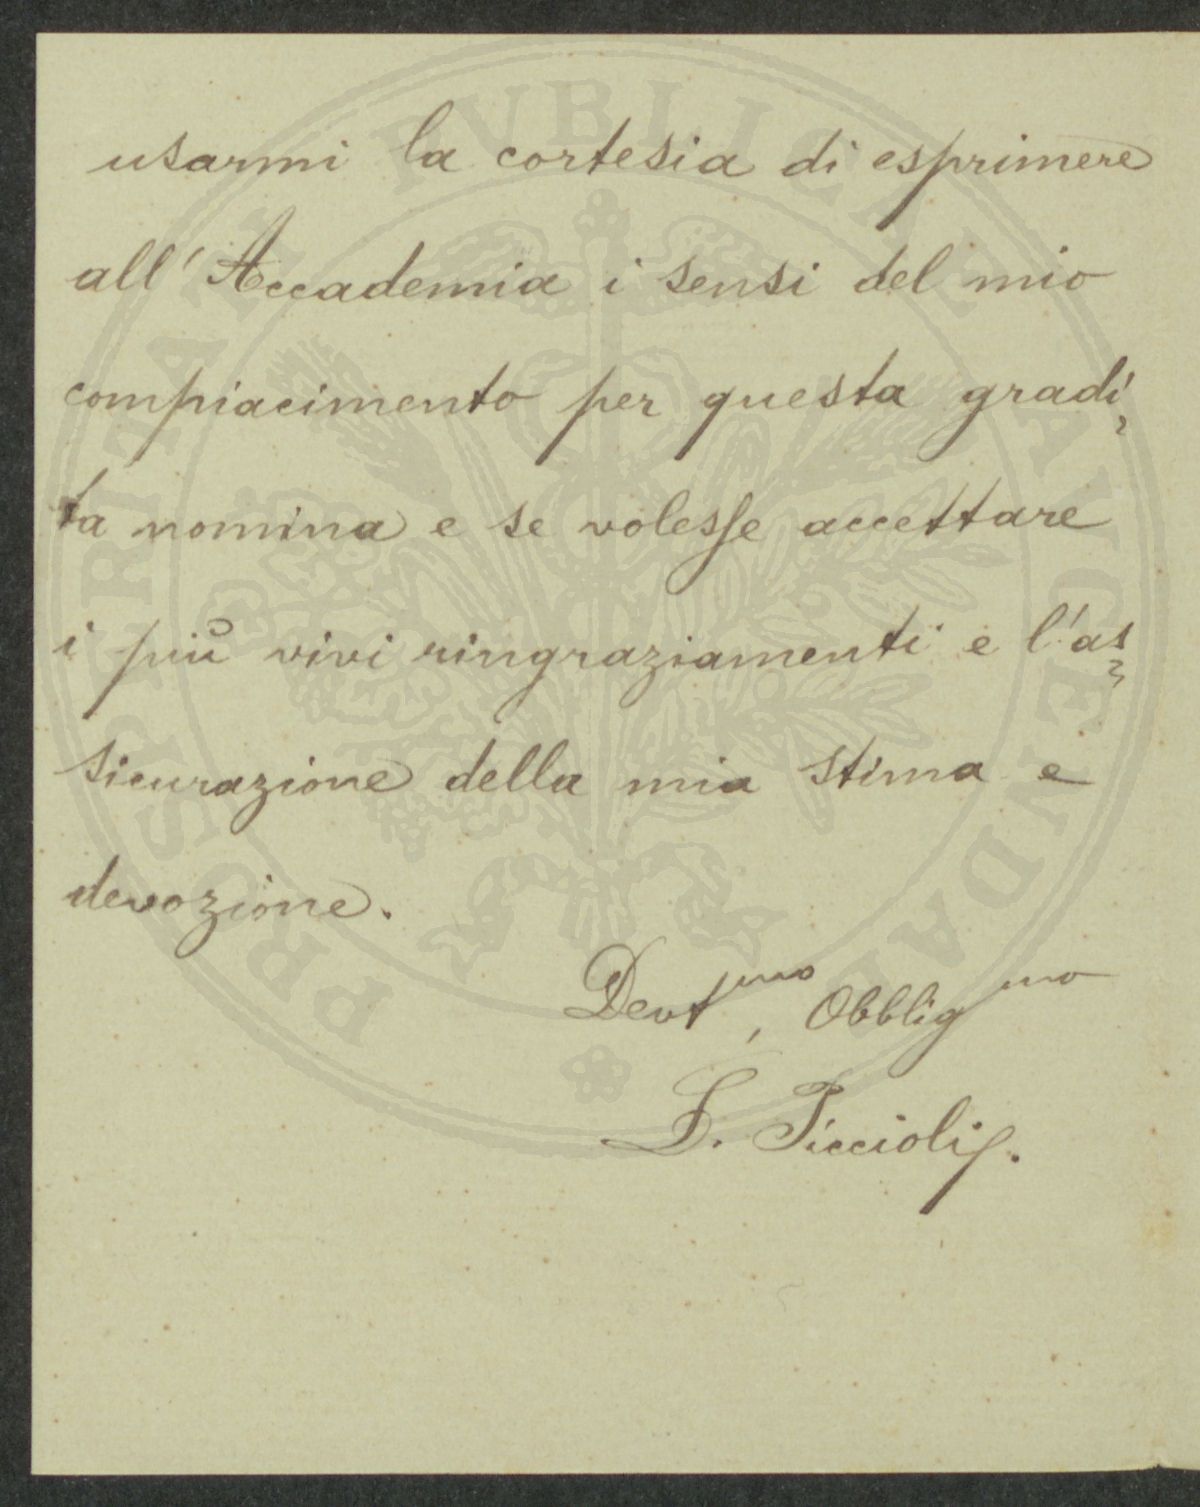 usarmi la cortesia di esprimere
all'Accademia i sensi del mio
compiacimento per questa gradi=
ta nomina e se volesse accettare
i più vivi ringraziamenti e l'as=
sicurazione della mia stima e
devozione.
Devt^mo, Obblig^mo
L. Piccioli.
PROSPERITATI PVBLICAE AVGENDAE